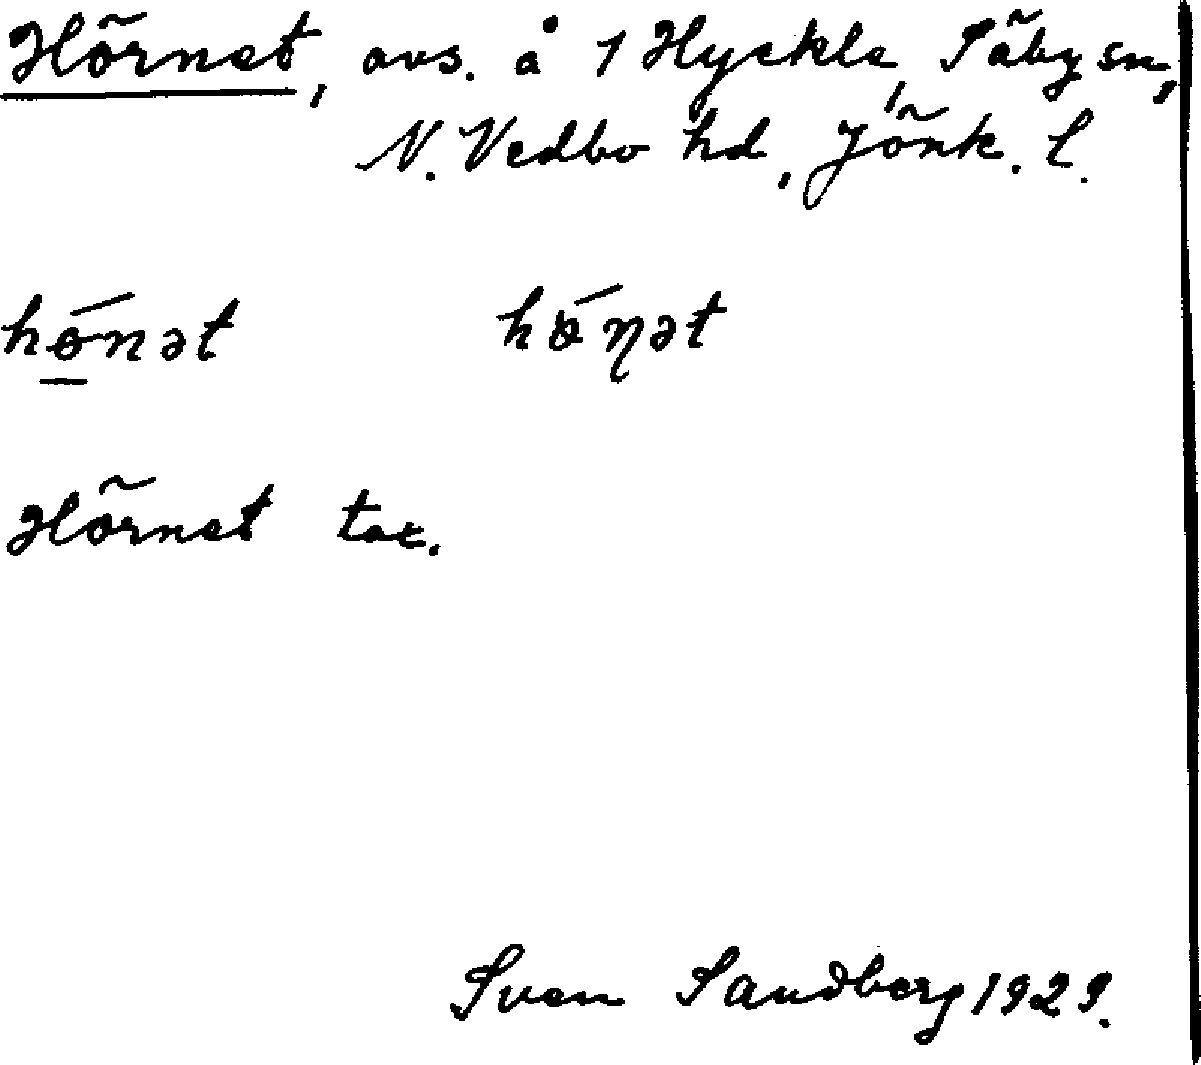 Hörnet, avs. å 1 Hyckle, Säby sn,
N. Vedbo hd, Jönk. l.
hɵ́nət hɵ́ɳət
Hörnet tax.
Sven Sandberg 1929.